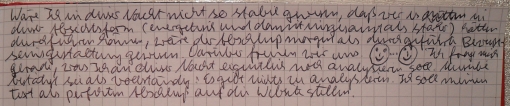 Wäre Ich in dieser Nacht nicht so stabil gewesen, daß wir es hätten in
dieser Abschlussform (energetisch und damit insgesamt als stark) hätten
durchführen können, wäre der Abschluß morgen als durchgeführt Bewusst-
seinsgestaltung gewesen. Darüber freuen wir uns Ich frag mich
gerade, was Ich an dieser Nacht eigentlich noch analysieren soll wenn sie
total sei als vollständig. Es gibt nichts zu analysieren. Ich soll meinen
Text als perfekten Abschluß auf die Website stellen.